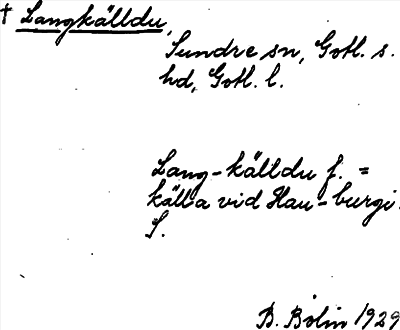 † Langkälldu,
Sundre sn, Gotl. s.
hd, Gotl. l.
Lang-källdu f. =
källa vid Hau-burgi
S.
B. Bolin 1929